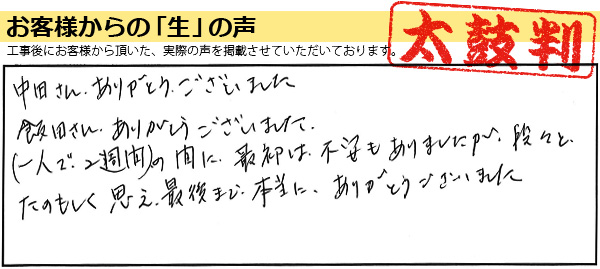 お客様からの「生」の声
工事後にお客様から頂いた、実際の声を掲載させていただいております。
太鼓判
中田さん、ありがとう、ございました
飯田さん、ありがとうございました、
(一人で、2週間)の間に、最初は、不安もありましたが、段々と、
たのもしく思え、最後まで、本当に、ありがとうございました